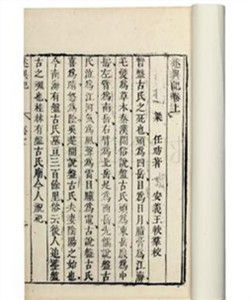 述異記卷上
梁 任昉著 安義王軼羣校
昔盤古氏之死也頭爲四岳目爲日月脂膏爲江海
毛髮爲草木秦漢間俗說盤古氏頭爲東岳腹爲中
岳左臂爲南岳右臂爲北岳足爲西岳先儒說盤古
氏泣爲江河氣爲風聲爲雷目瞳爲電古說盤古氏
喜爲晴怒爲陰吳楚間說盤古氏夫妻陰陽之始也
今南海有盤古氏墓亘三百餘里俗云後人追葬盤
古之魂也桂林有盤古氏廟今人祝祀
述異記